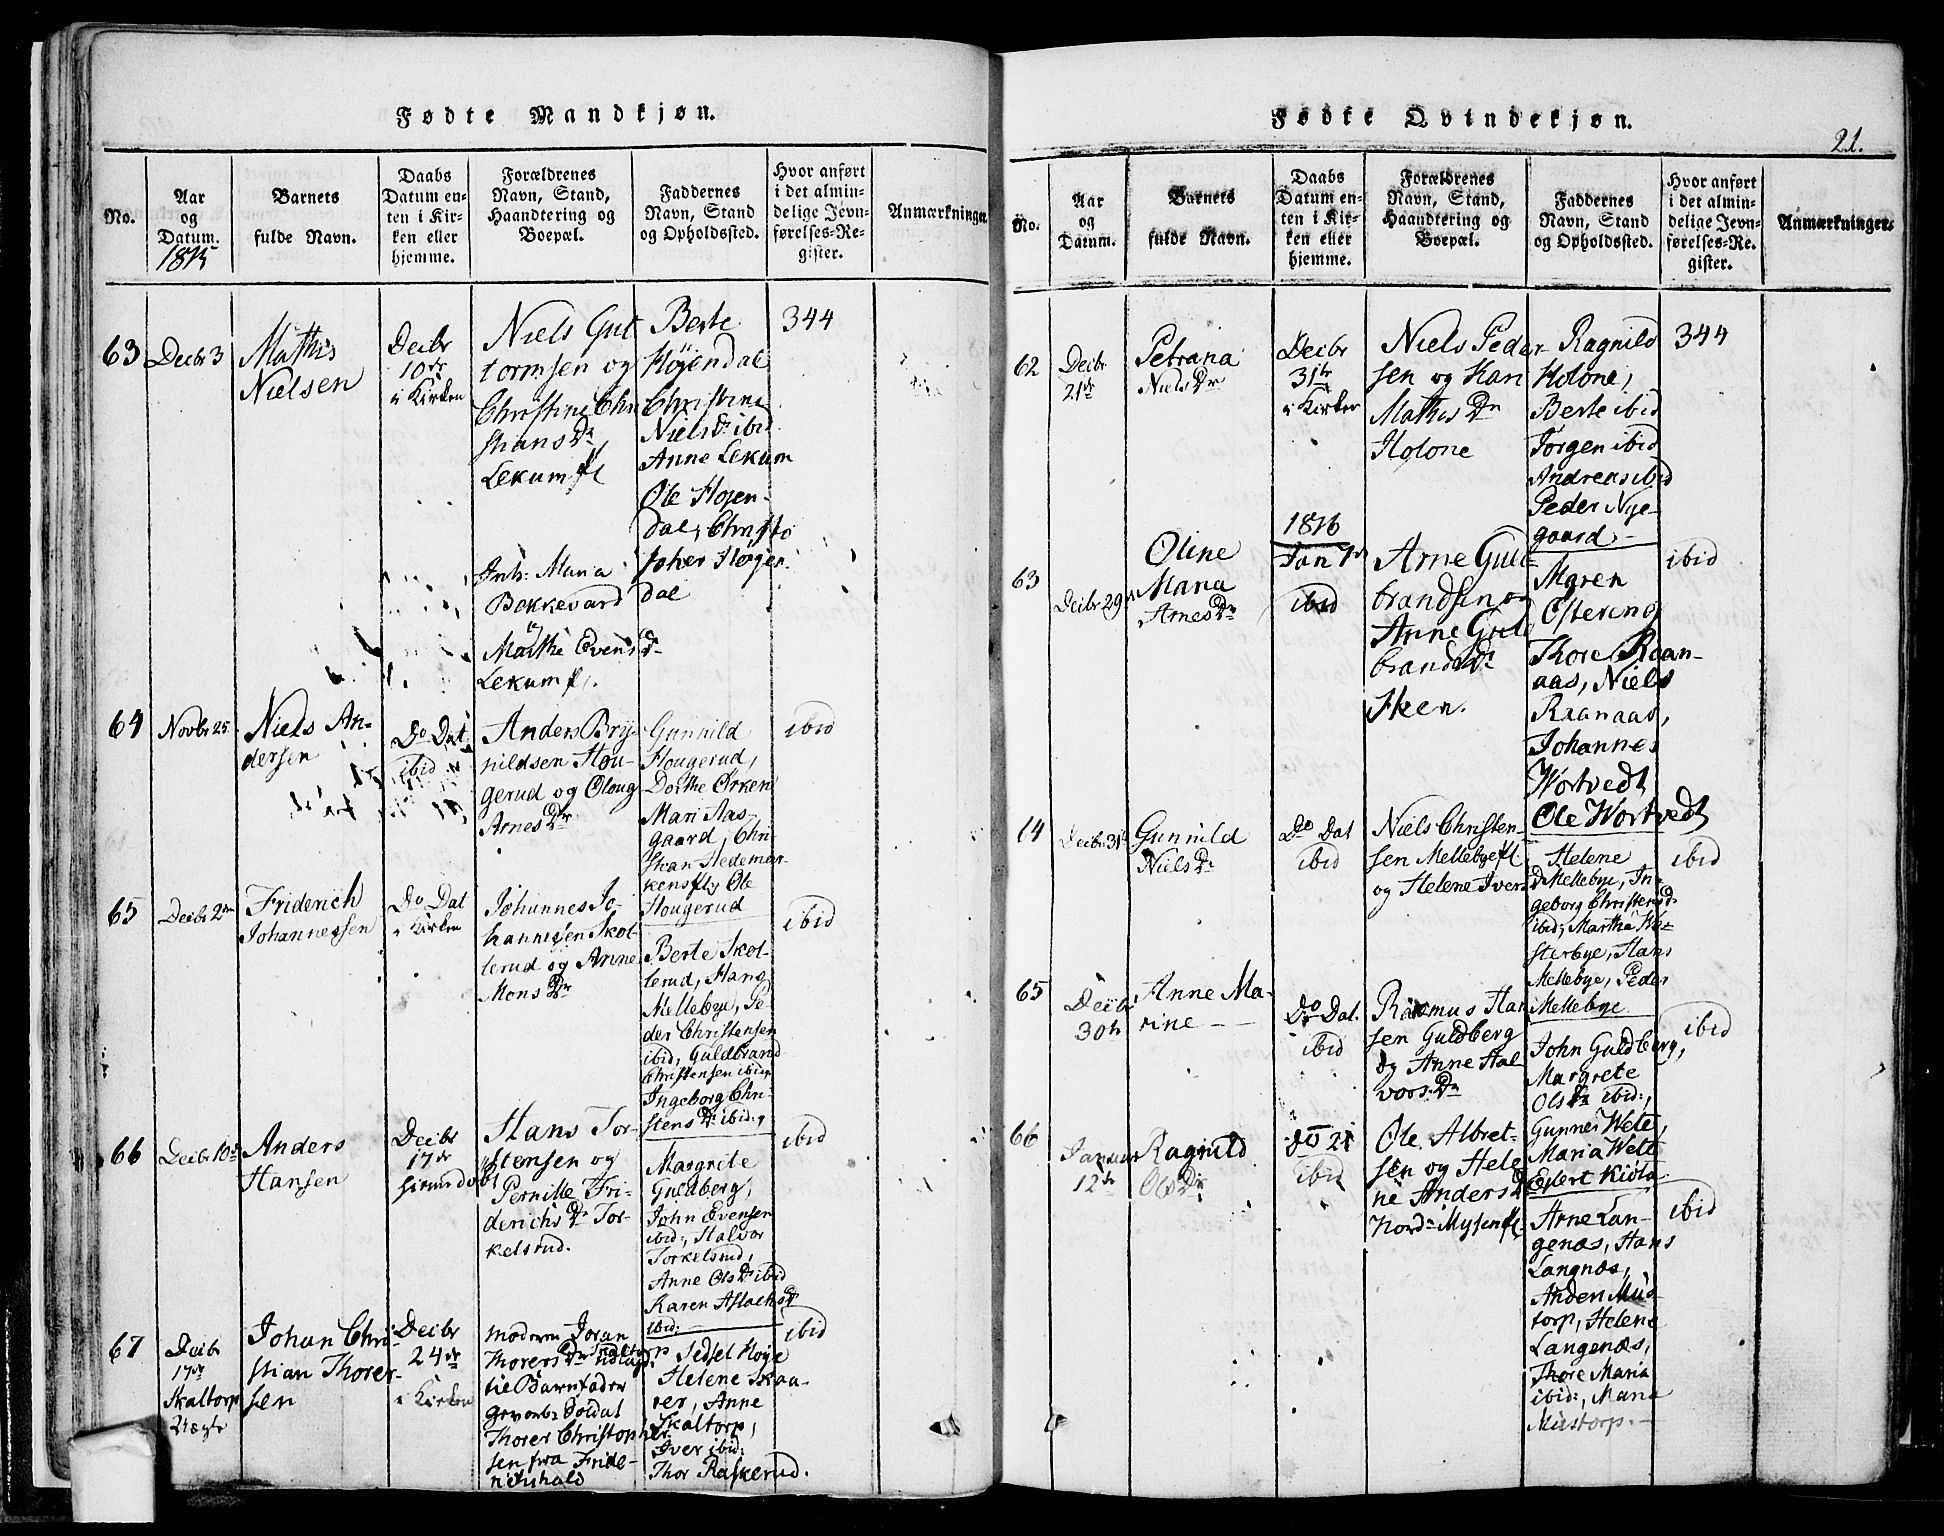 Fødte Mandkjøn.
No.
Aar
og
Datum.
1815
Barnets
fulde Navn.
Daabs
Datum en-
ten i Kir-
ken eller
hjemme.
Forældrenes
Navn, Stand,
Haandtering og
Boepæl.
Faddernes
Navn, Stand
og Opholdssted.
Hvor anført
i det almin-
delige Jevn-
førelses-Re-
gister.
Anmærkninger.
63
Decbr 3
Mathis
Nielsen
Decbr
10de
i Kirken
Niels Gut
tormsen og
Christine Chri
stians Dr
Lekum fl
Inh: Maria
Bakkevard
Marthe Evens Dr
Lekum fl.
Berte
Højendal
Christine
Niels Dr ibid
Anne Lekum
Ole Højen-
dal, Christo
Højen
dal
344
64
Novbr 25
Niels An-
dersen
Do Dat
ibid
Anders Bry-
nildsen Hou-
gerud og Oloug
Arnes Dr
Gunnild
Hougerud,
Dorthe Ørken
Mari Aas-
gaard, Chri
stian Hedemar
kens fl, Ole
Hougerud
ibid
65
Decbr 2
Friderich
Johannessen
Do Dat
i Kirken
Johannes Jo-
hannessen Skol-
lerud og Anne
Mons Dr
Berte Skol-
lerud, Hans
Mellebye, Pe-
der Christensen
ibid, Guldbrand
Christensen ibid,
Ingeborg Chri-
stens Dr ibid,
ibid
66
Decbr 10de
Anders
Hansen
Decbr
17de
hjemmedøbt
Hans Tor-
stensen og
Pernille Fri-
derichs Dr Tor-
kelsrud.
Margrete
Guldberg,
John Evensen
ibid, Halvor
Torkelsrud,
Anne Ols Dr ibid
Karen Aslachs Dr
ibid.
ibid
67
Decbr
17de
Skaltorp
Johan Chri-
stian Thorer-
sen
Decbr
24de
i Kirken
Moderen Joran
Thorers Dr Skaltorp
Barnefader
Soldat
Thorer Christopher
sen fra Fride-
richshald
Sedsel Hoye
Helene Skaa-
rer, Anne
Skaltorp,
Iver ibid
Thor Raskerud.
ibid
Fødte Qvindekjøn.
21.
No.
Aar
og
Datum.
Barnets
fulde Navn.
Daabs
Datum en-
ten i Kir-
ken eller
hjemme.
Forældrenes
Navn, Stand,
Haandtering og
Boepæl.
Faddernes
Navn, Stand
og Opholdssted.
Hvor anført
i det almin-
delige Jevn-
førelses-Re-
gister.
Anmærkninger.
62
Decbr
21de
Petrana
Niels Dr
Decbr
31te
i Kirken
Niels Peder-
sen og Kari
Mathis Dr
Holone
Ragnild
Holone,
Berte ibid
Jørgen ibid
Andreas ibid
Peder Nye-
gaard
344
63
Decbr 29
Oline
Maria
Arnes Dr
1816
Jan 7de
ibid
Arne Guld-
brandsen og
Anne Guld
brands Dr
Skeen.
Maren
Ostering
Thore Raan-
aas, Niels
Raanaas,
Johannes
Wortvedt
Ole Wortvedt
ibid
14
Decbr 31te
Gunnild
Niels Dr
Do Dat
ibid
Niels Christen-
sen Mellebye fl
og Helene Ivers
Dr
Helene
Mellebye, In-
geborg Christens Dr
ibid, Marthe We-
sterbye, Hans
Mellebye, Peder
Mellebye
ibid
65
Decbr
30te
Anne Ma-
rine
Do Dat.
ibid
Rasmus Han
sen Guldberg
og Anne Hal
vors Dr
John Guldberg,
Margrete
Ols Dr ibid,
Gunnes Wete,
Maria Wete
Eilert Kiota
ibid
66
Januar
12te
Ragnild
Ols Dr
Do 21
ibid
Ole Albret-
sen og Hele
ne Anders Dr
Nord-Mysen fl
Arne Lan-
genæs, Hans
Langnæs,
Anders Mus-
torp, Helene
Langenæs,
Thore Maria
ibid, Maria
Mustorp.
ibid